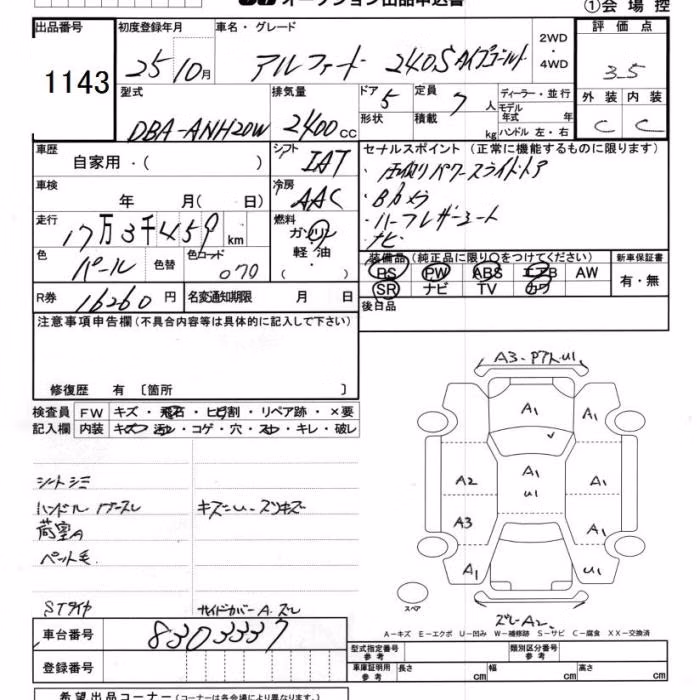 オークション出品申込書
①会場控
出品番号 初度登録年月 車名・グレード 評価点
1143 25/10月 アルファード 240S 2WD・4WD 3.5
型式 排気量 ドア 定員 ディーラー・並行 外装 内装
DBA-ANH20W 2400cc 5 7人 モデル年式 年 C C
形状 積載 kg ハンドル 左・右
車歴 シフト セールスポイント (正常に機能するものに限ります)
自家用・( ) IAT ・両側パワースライドドア
車検 冷房 ・Bカメラ
年 月( 日) AAC ・ハーフレザーシート
走行 燃料 ・ナビ
17万3千459km ガソリン 軽油・( )
色 色替 色コード 装備品 (純正品に限り○をつけてください) 新車保証書
パール 070 PS PW ABS エアB AW 有・無
R券 名変通知期限 SR ナビ TV カワ
16260円 月 日 後日品
注意事項申告欄(不具合内容等は具体的に記入して下さい)
修復歴 有 〔箇所 〕
検査員 FW キズ・飛石・ヒビ割・リペア跡・×要
記入欄 内装 キズ・汚レ・コゲ・穴・スレ・キレ・破レ
シートシミ
ハンドル キズ
荷室A
ペット毛
STタイヤ サイドカバーA.ズレ
A3 U1
A1
A1
A2 A1 A1
U1
A3 A1
A1 U1
スペア ズレA2
A-キズ E-エクボ U-凹み W-補修跡 S-サビ C-腐食 XX-交換済
車台番号 8303337
登録番号
型式指定番号 参考 類別区分番号 参考
車庫証明用 参考 長さ cm 幅 cm 高さ cm
希望出品コーナー (コーナーは各会場により異なります。)